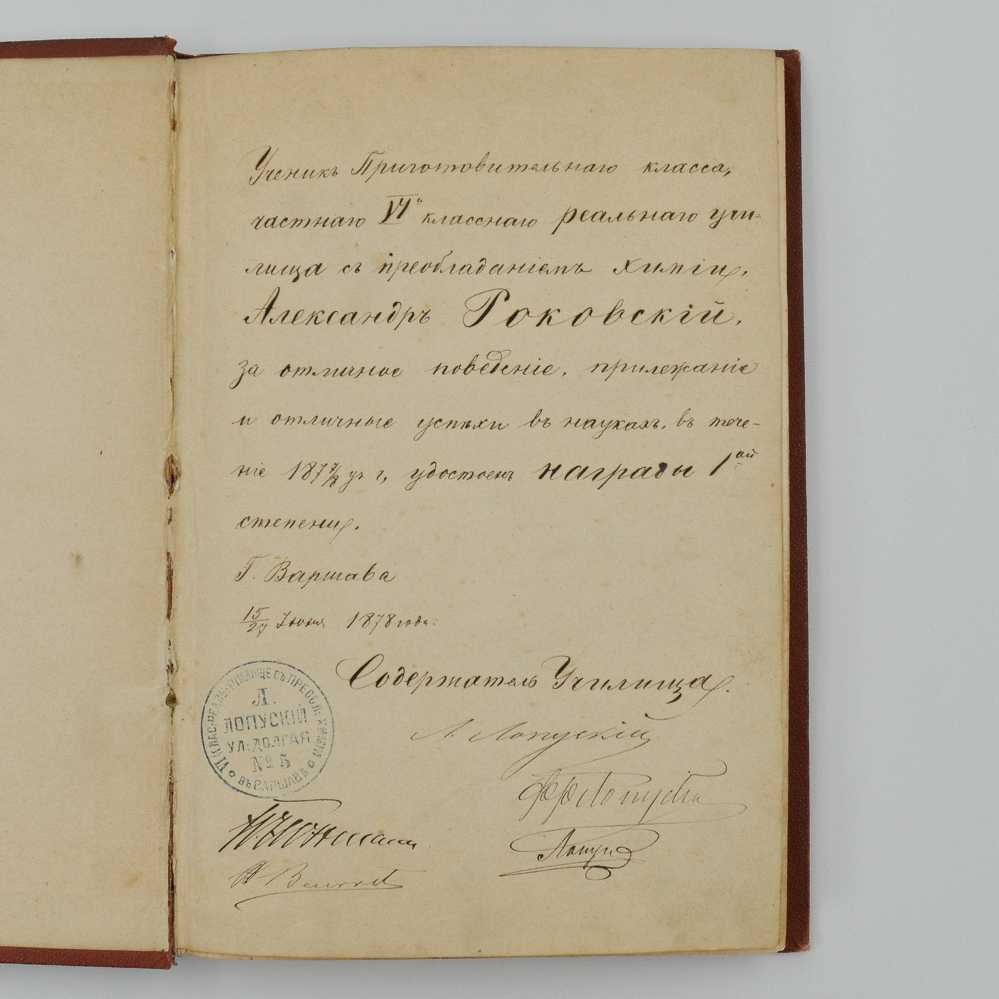 Ученикъ Приготовительнаго класса,
частнаго VIи класснаго реальнаго учи-
лища съ преобладаніемъ химіи,
Александръ Роковскій,
за отличное поведеніе, прилежаніе
и отличные успѣхи въ наукахъ, въ тече-
ніе 187 7/8 уч г, удостоенъ награды 1ой
степени.
Г. Варшава
15/27 Іюня 1878 года.
Содержатель Училища.
Л. Лопускій
VI КЛАС. РЕАЛЬ. УЧИЛИЩЕ СЪ ПРЕОБЛ. ХИМІИ
Л.
ЛОПУСКІЙ
УЛ. ДОЛГАЯ
№ 5
ВЪ ВАРШАВѢ